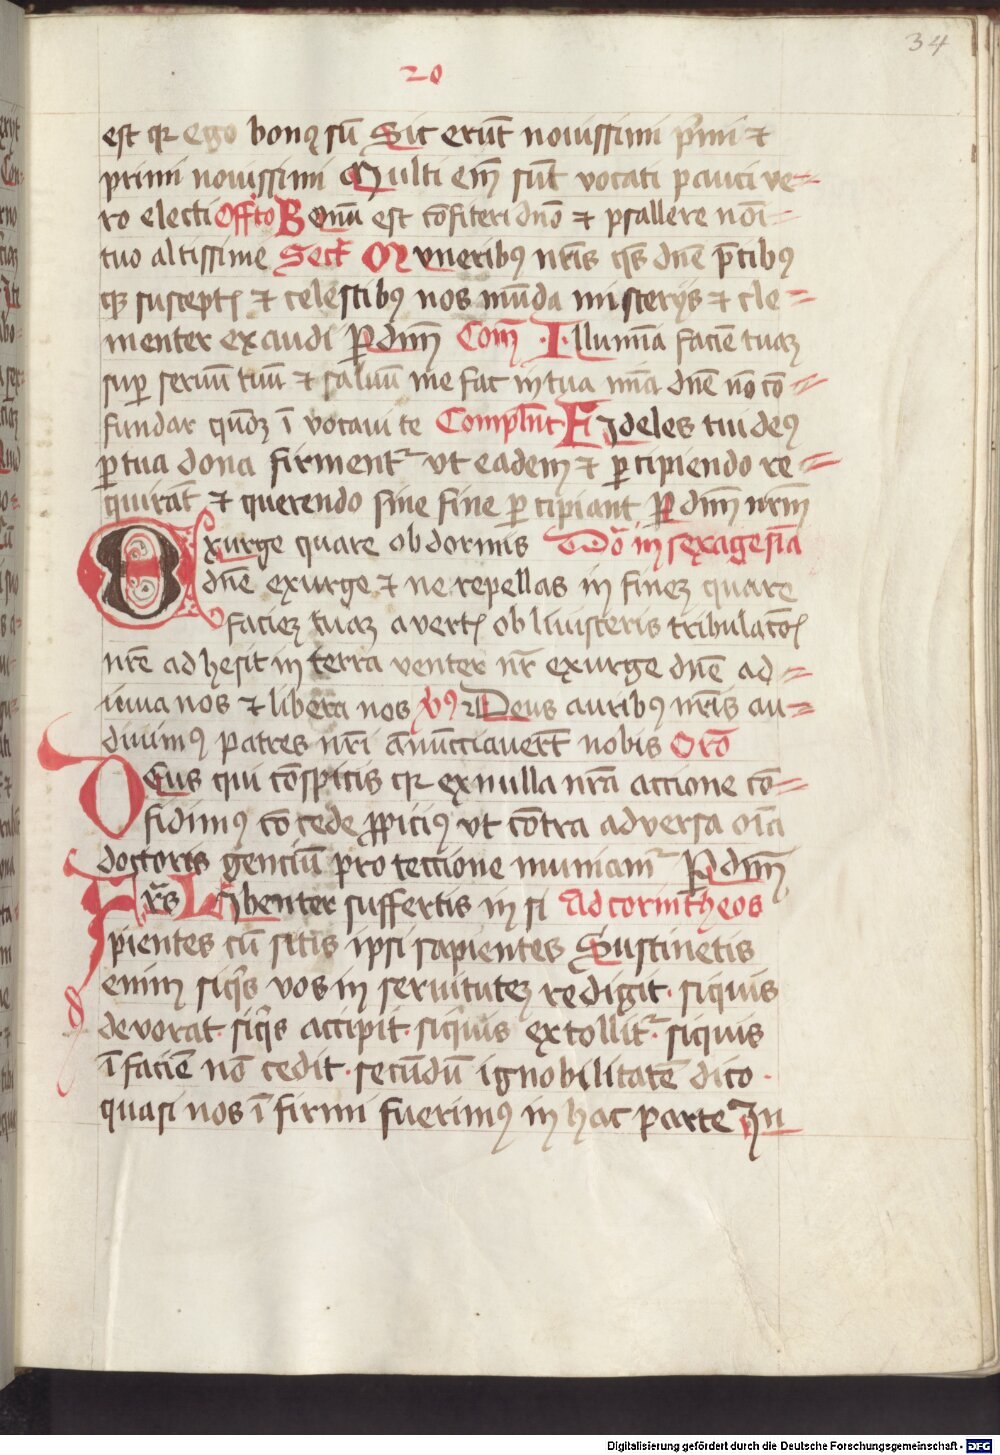 34
20
est qr ego bonꝯ sū Sic erūt nouissimi pⁱmi ⁊
primi nouissimi Multi em̄ sūt vocati pauci ve=
ro electi Offto Bonū est cōfiteri dnō ⁊ psallere noī=
tuo altissime Secr̄ Muneribꝯ nr̄is qs̄ dnē p̄cibꝯ
qꝫ susceptʃ ⁊ celestibꝯ nos mūda misterijs ⁊ cle=
menter exaudi P dnm̄ Com̄ ·I·llumīa faciē tuaꝫ
suꝑ seruū tuū ⁊ saluū me fac in tua mīa dnē nō cō=
fundar qm̄ īvocaui te Compln̄t Fideles tui deꝯ
ꝑ tua dona firmentᷣ vt eadem ⁊ ꝑcipiendo re=
quirāt ⁊ querendo sine fine ꝑcipiant P dnm̄ nrm̄
Exurge quare obdormis Dn̄ica in sexagesīa
dnē exurge ⁊ ne repellas in fineꝫ quare
facieꝫ tuaꝫ avertʃ obliuisceris tribulacōʃ
nrē adhesit in terra venter nr̄ exurge dnē ad=
iuua nos ⁊ libera nos v̓ꝯ Deus auribꝯ nr̄is au=
diuimꝯ patres nr̄i anūcciauerūt nobis Orō
Deus qui cōspicis qr ex nulla nrā accione cō=
fidimꝯ cōcede ꝓpiciꝯ vt cōtra adversa oīa
doctoris genciū protectione muniamᷣ P dnm̄
Frs̄ Libenter suffertis insi Ad corintheos
pientes cū sitis ipsi sapientes Sustinetis
enim siqⁱs vos in seruituteꝫ redigit · siquis
devorat · siqⁱs accipit · siquis extollitᷣ · siquis
ī faciē nō cedit · secūdū ignobilitatē dico ·
quasi nos īfirmi fuerimꝯ in hac parte In
Digitalisierung gefördert durch die Deutsche Forschungsgemeinschaft - DFG